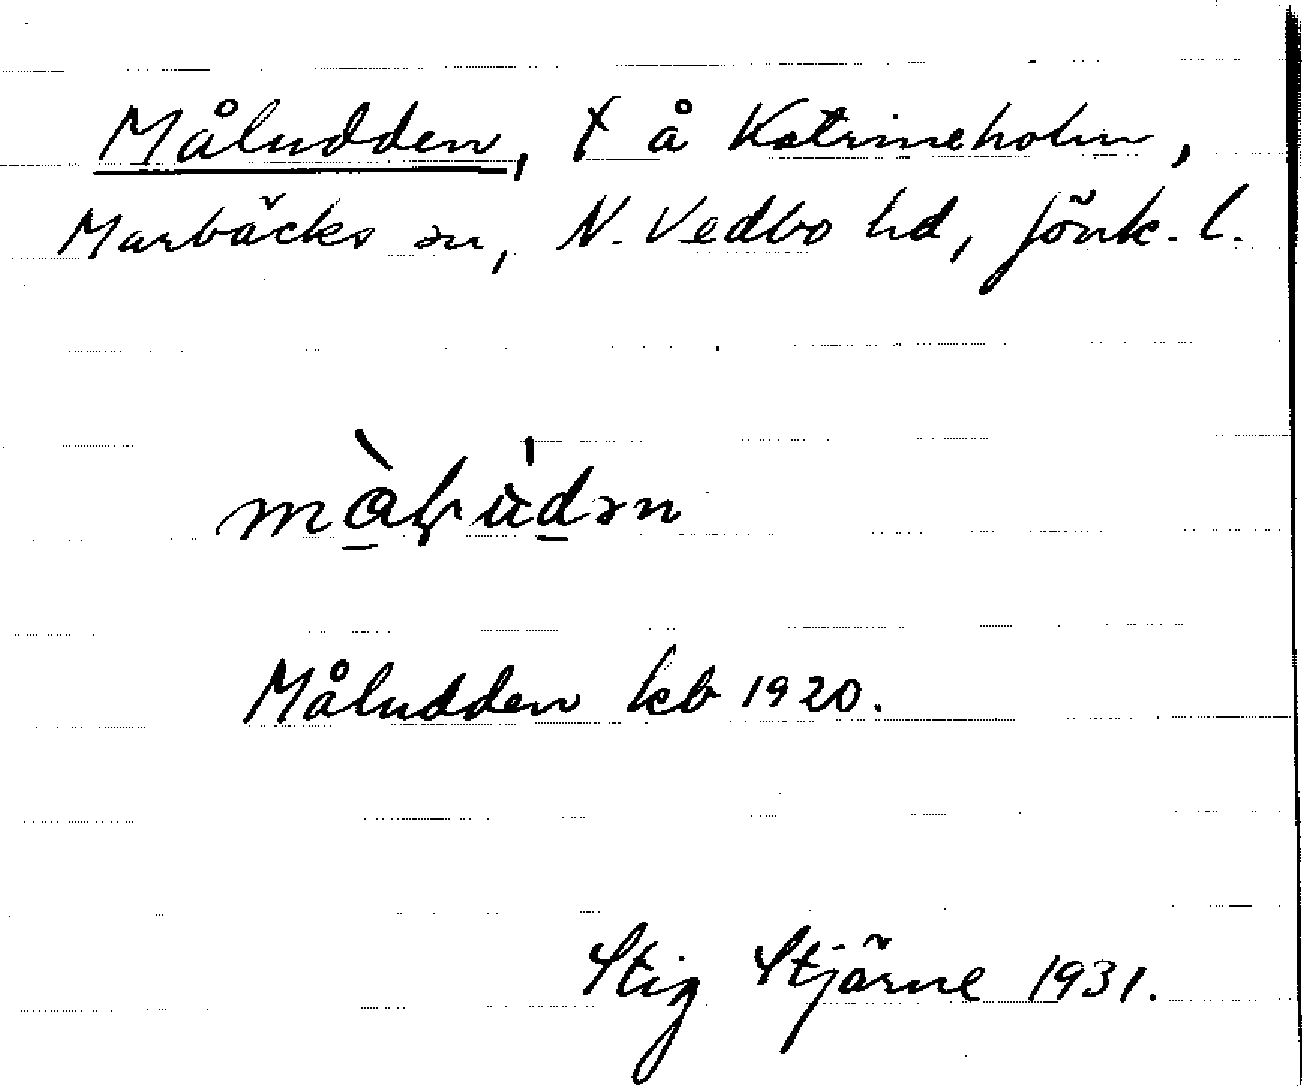 Måludden, t å Katrineholm,
Marbäcks sn, N. Vedbo hd, Jönk. l.
màlùdən
Måludden kb 1920.
Stig Stjärne 1931.